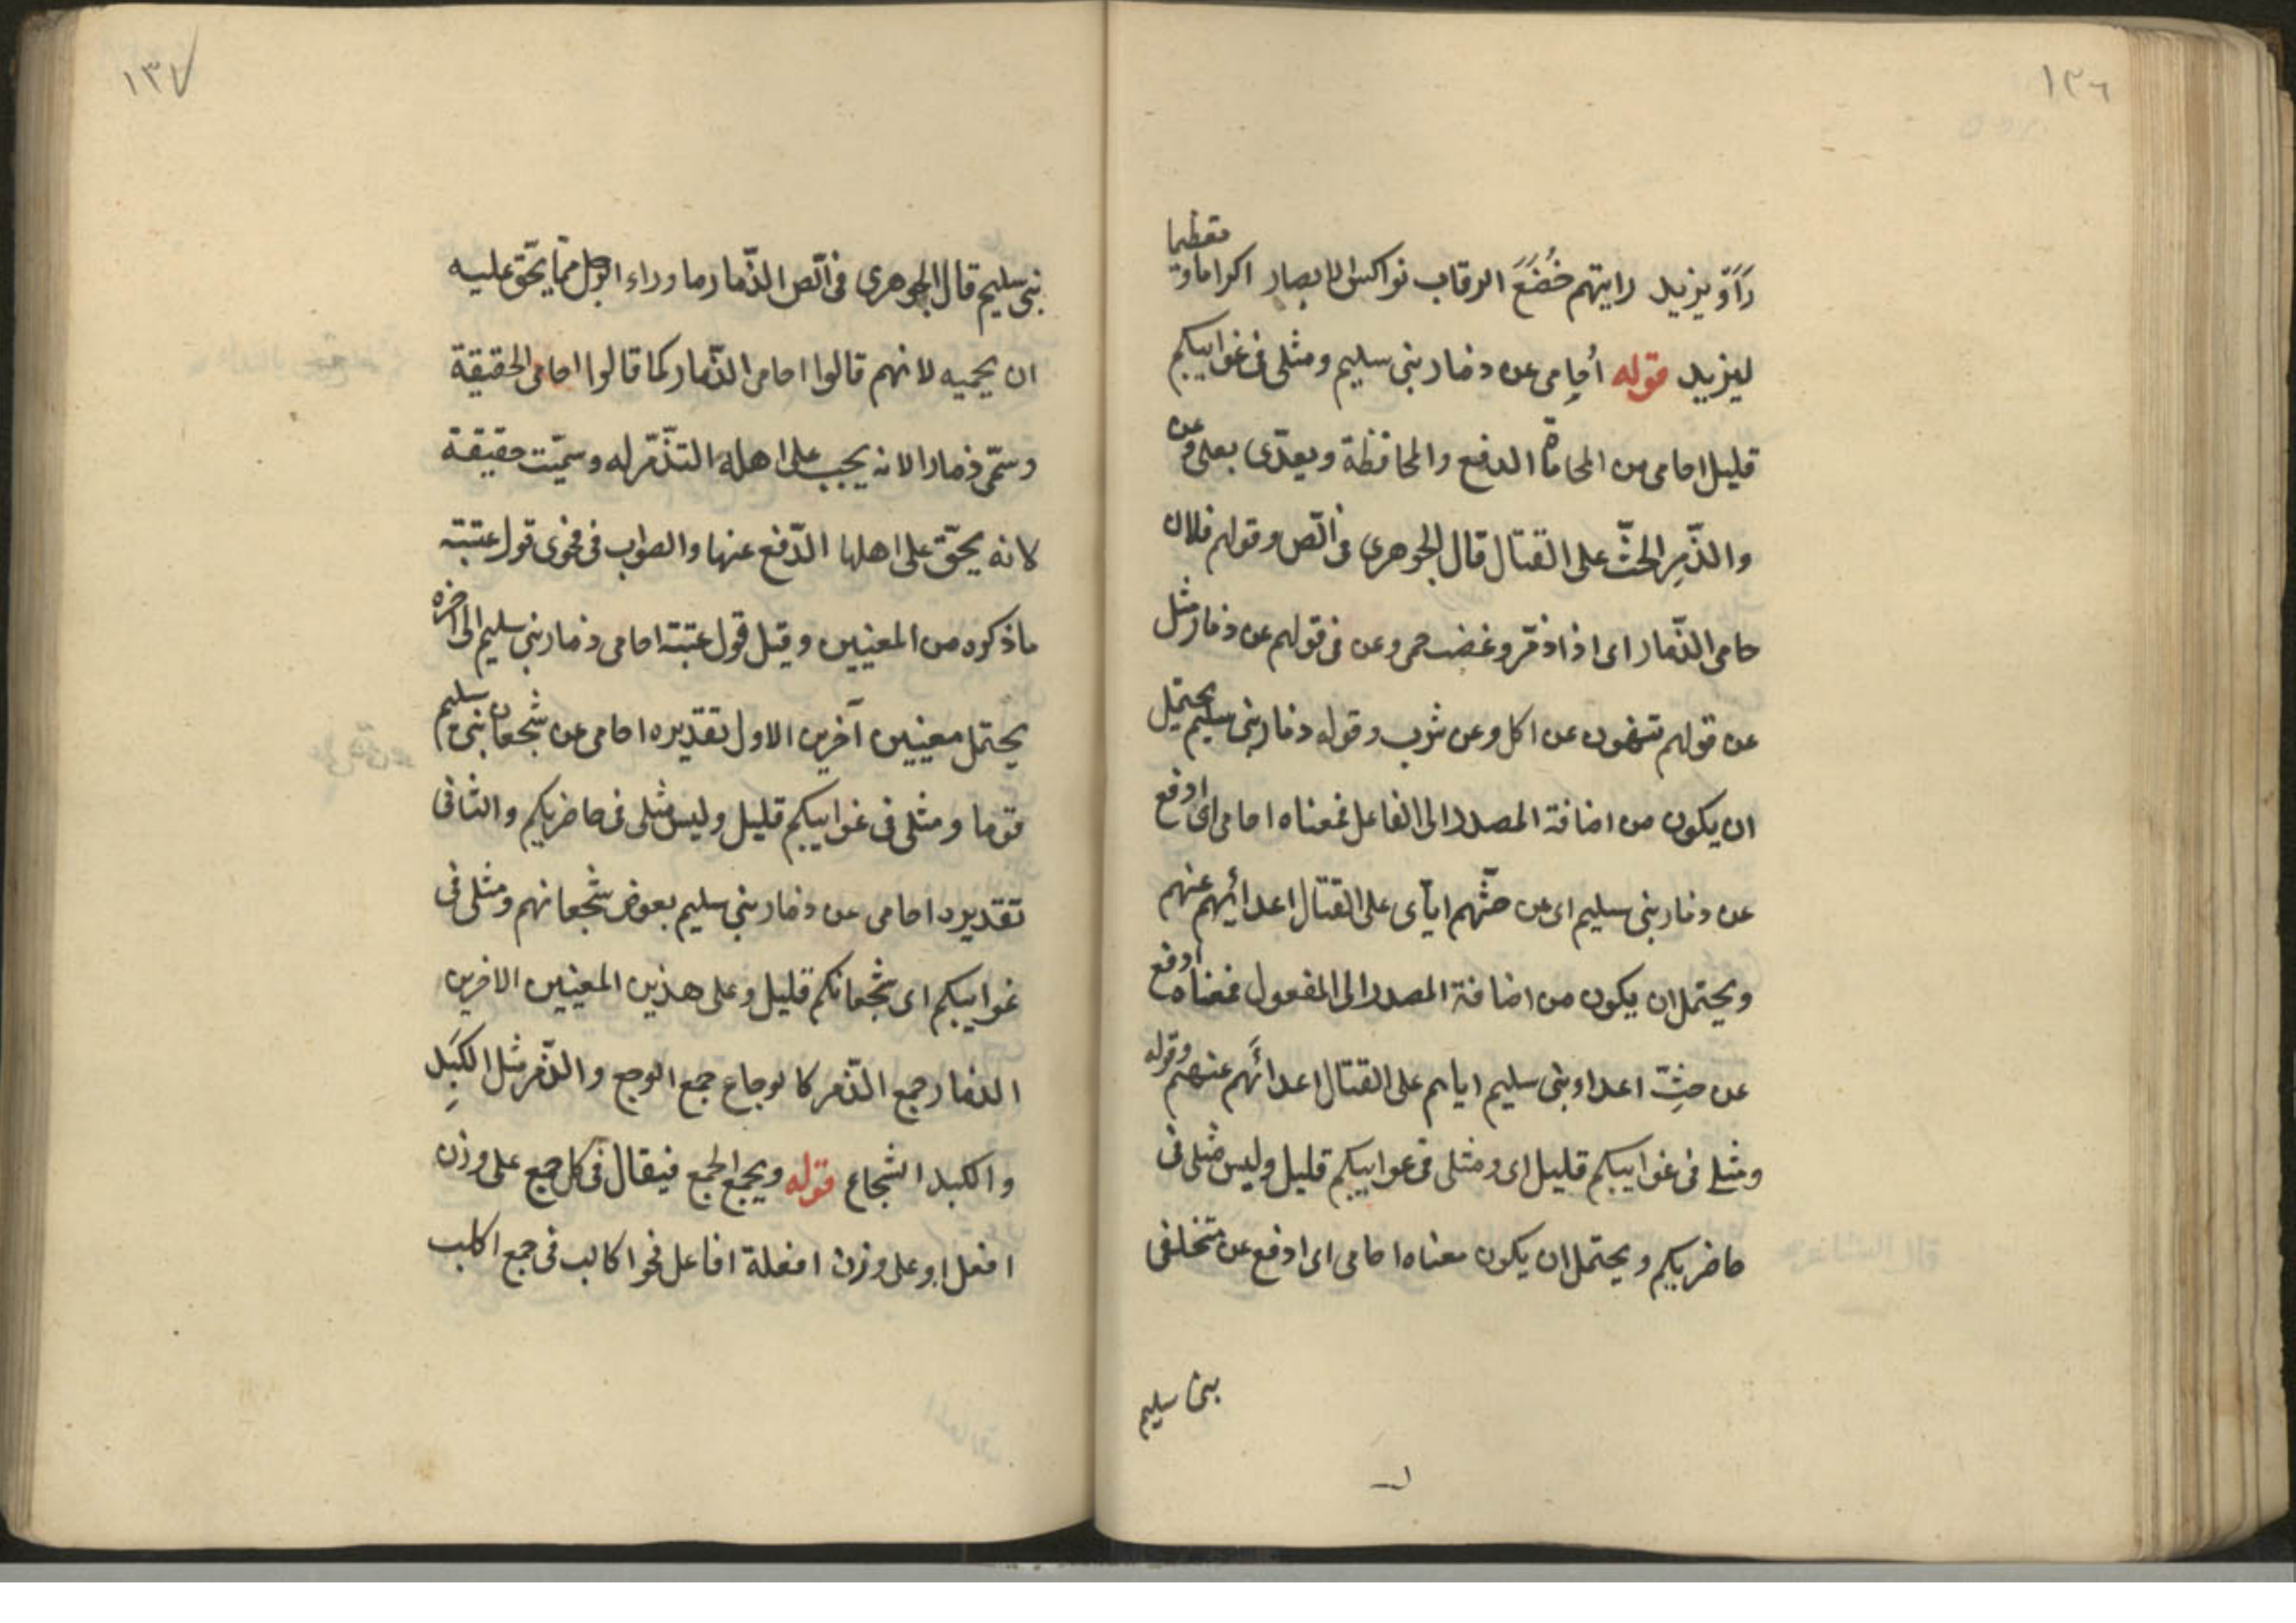 ١٣٦
رَأَوْ يزيد رايتهم خُضُعَ الرقاب نواكس الابصار اكراما وتعظيما
ليزيد قوله أُحامِى عن ذمار بنى سليم ومثلى فى غوايبكم
قليل احامى من المحاماة الدفع والمحافظة ويعدّى بعلى وعن
والذّمِر الحثّ على القتال قال الجوهرى فى الّص وقولهم فلان
حامى الذّمار اى اذا ذمّر وغضب حمى وعن فى قولهم عن ذمار مثل
عن قولهم تنهون عن اكل وعن شرب وقوله ذمار بنى سليم يحتمل
ان يكون من اضافة المصدر الى الفاعل فمعناه احامى اى ادفع
عن ذمار بنى سليم اى عن حثّهم ايآى على القتال اعدائهم عنهم
ويحتمل ان يكون من اضافة المصدر الى المفعول فمعناه ادفع
عن حثِّ اعداو بنى سليم اياهم على القتال اعدائهم عنهم وقوله
ومثلى فى غوايبكم قليل اى ومثلى فى غوايبكم قليل وليس مثلى فى
حاضريكم ويحتمل ان يكون معناه احامى اى ادفع عن متخلفى
بنى سليم
١٣٧
بنى سليم قال الجوهرى فى الّص الذّمار ما وراء الرجل ممّا يحّق عليه
ان يحميه لانهم قالوا احامى الذّمار كما قالوا احامى الحقيقة
وسمّى ذمارا لانه يجب على اهله التذمّر له وسمّيت حقيقة
لانه يحّق على اهلها الدّفع عنها والصواب فى فحوى قول عتبة
ماذكره من المعنيين وقيل قول عتبة احامى ذمار بنى سليم الى اخره
يحتمل معنيين آخرين الاول تقديره احامى عن شجعان بنى سليم
قوما ومثلى فى غوايبكم قليل وليس مثلى فى حاضريكم والثانى
تقديره احامى عن ذمار بنى سليم بعوض شجعانهم ومثلى فى
غوايبكم اى شجعانكم قليل وعلى هذين المعنيين الاخرين
الذمار جمع الذّمر كالوجاع جمع الوجع والذّمر مثل الكَبِد
والكبد الشجاع قوله ويجمع الجمع فيقال فى كل جمع على وزن
افعل او على وزن افعلة افاعل نحو اكالب فى جمع اكلب